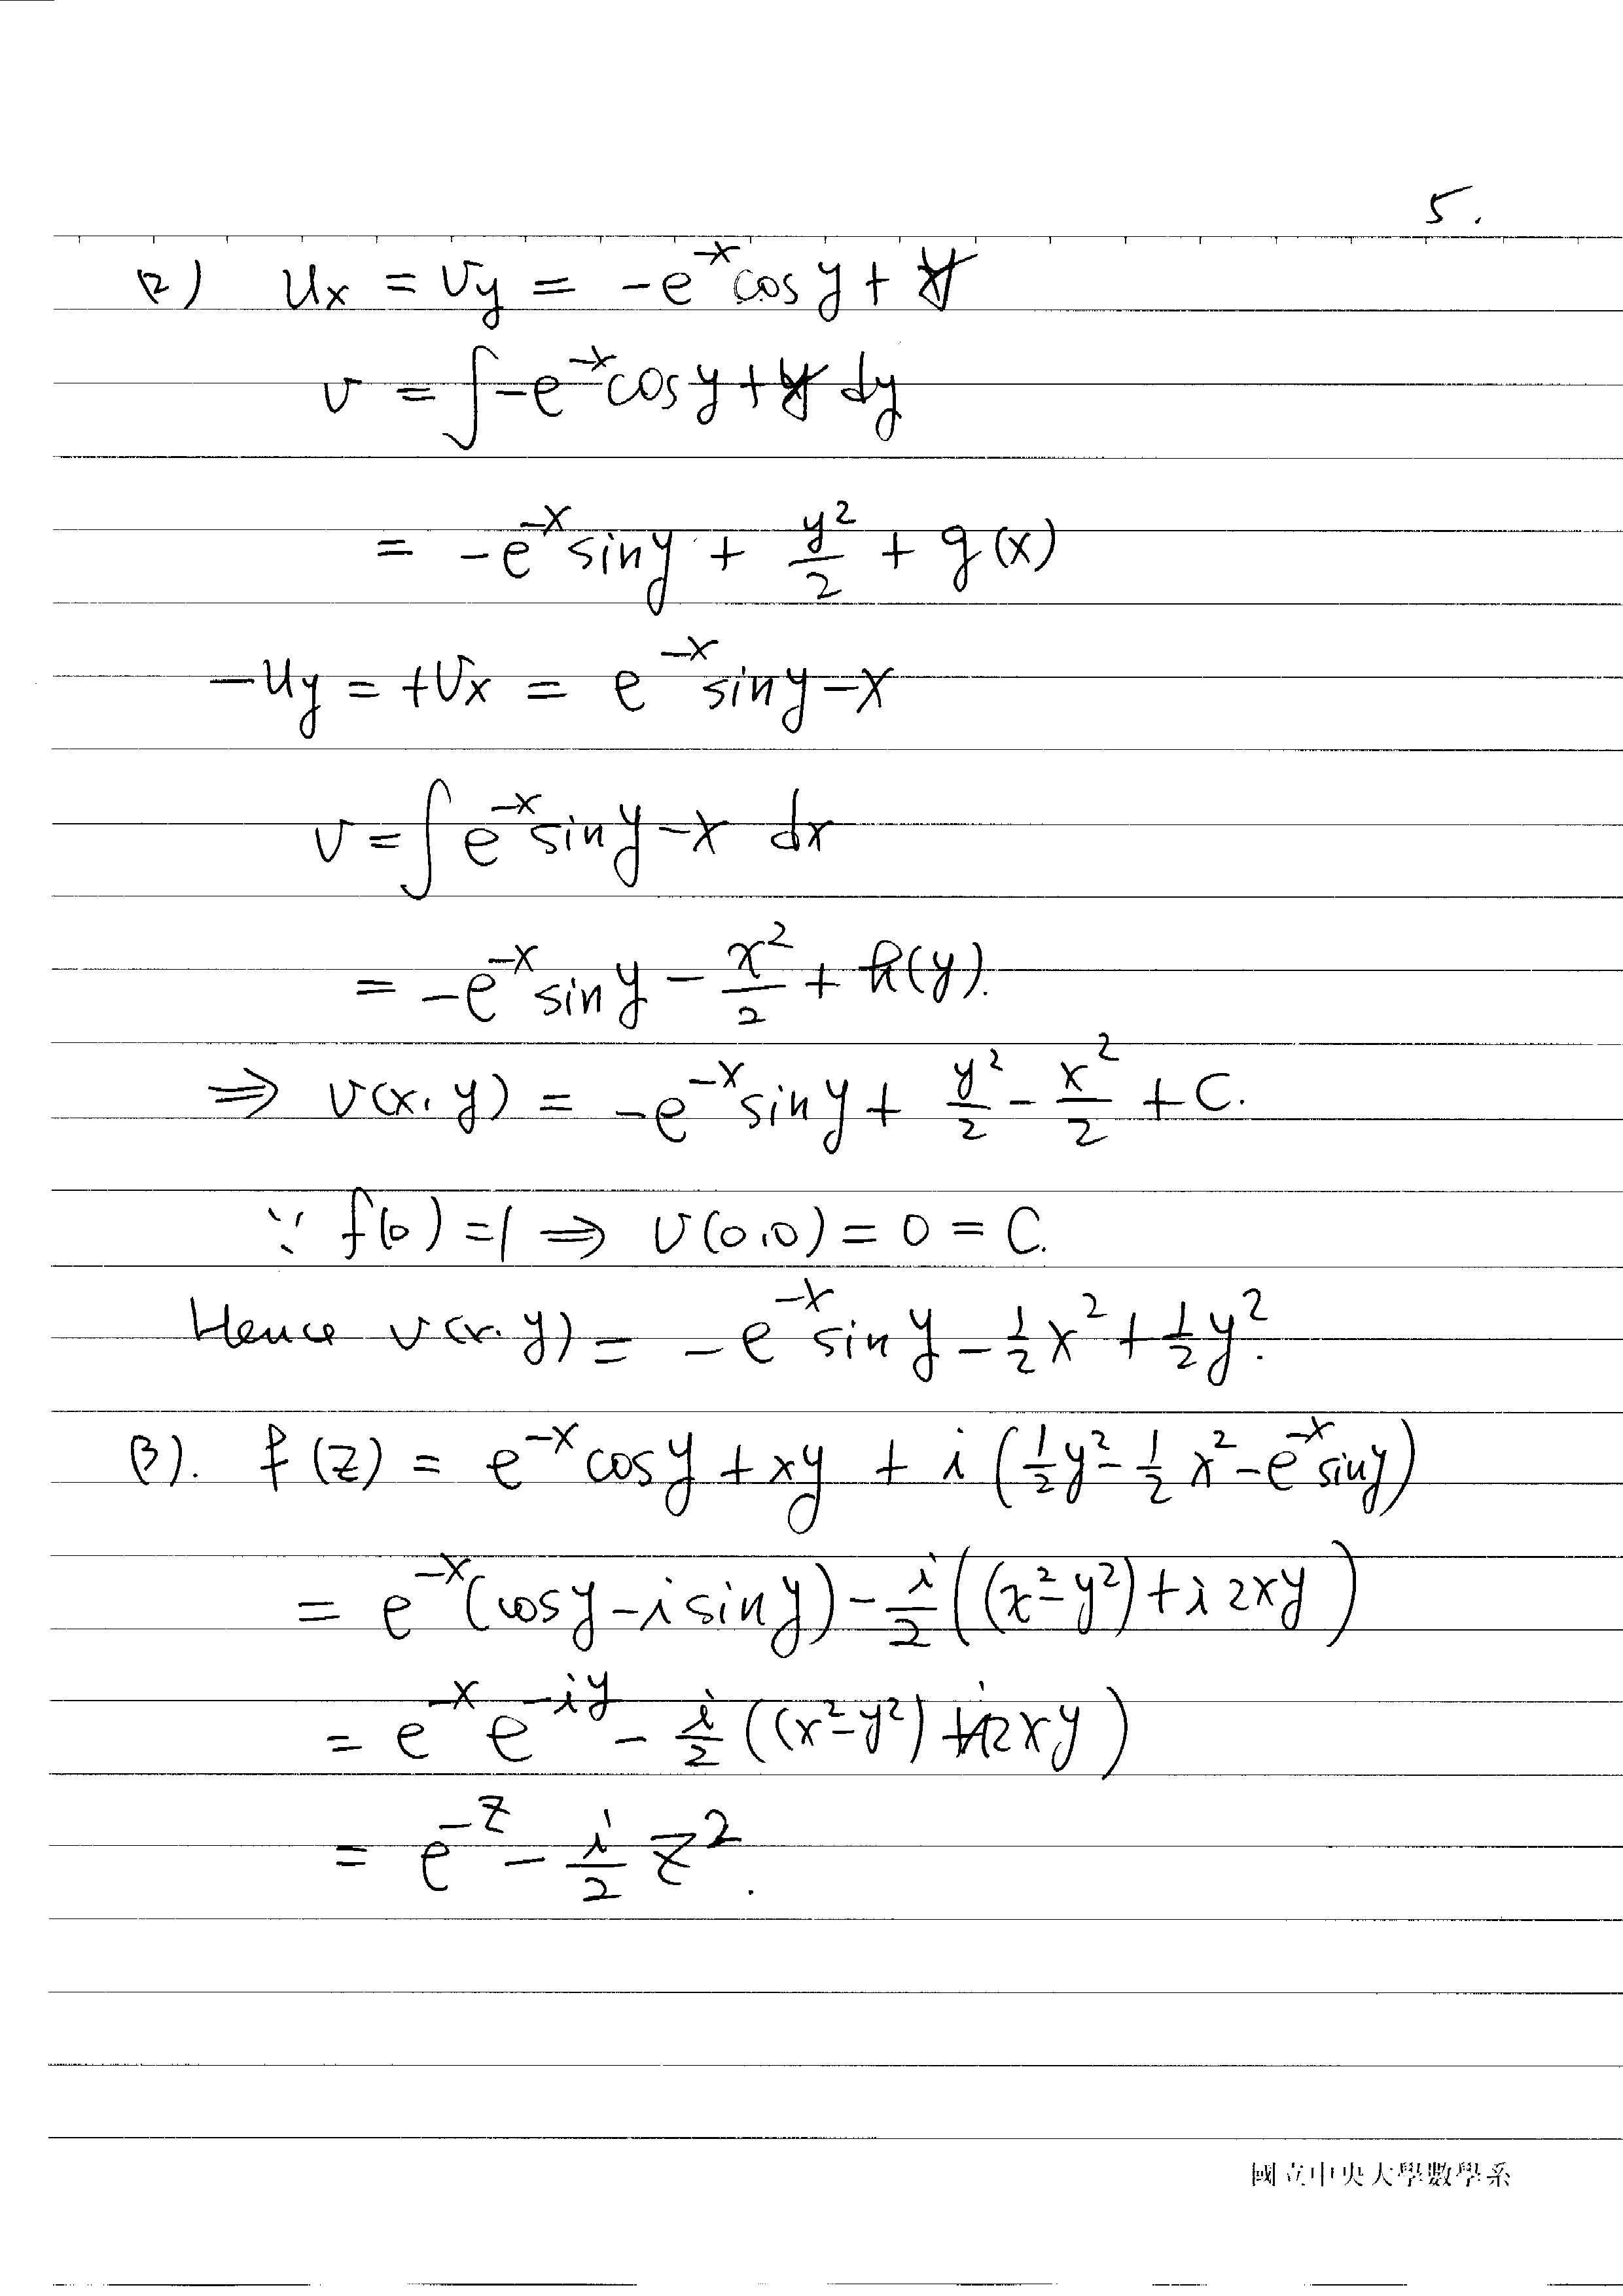 5.
(2) Ux = Vy = -e^{-x} cos y + y
v = ∫ -e^{-x} cos y + y dy
= -e^{-x} sin y + y²/2 + g(x)
-Uy = +Vx = e^{-x} sin y - x
v = ∫ e^{-x} sin y - x dx
= -e^{-x} sin y - x²/2 + h(y).
⇒ v(x, y) = -e^{-x} sin y + y²/2 - x²/2 + C.
∵ f(0) = 1 ⇒ v(0,0) = 0 = C.
Hence v(x, y) = -e^{-x} sin y - 1/2 x² + 1/2 y².
(3). f(z) = e^{-x} cos y + xy + i (1/2 y² - 1/2 x² - e^{-x} sin y)
= e^{-x} (cos y - i sin y) - i/2 ((x² - y²) + i 2xy)
= e^{-x} e^{-iy} - i/2 ((x² - y²) + i2xy)
= e^{-z} - i/2 z².
國立中央大學數學系